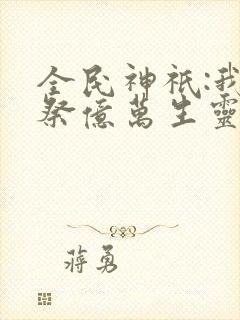 全民神祇:我
祭億萬生靈
蔣勇